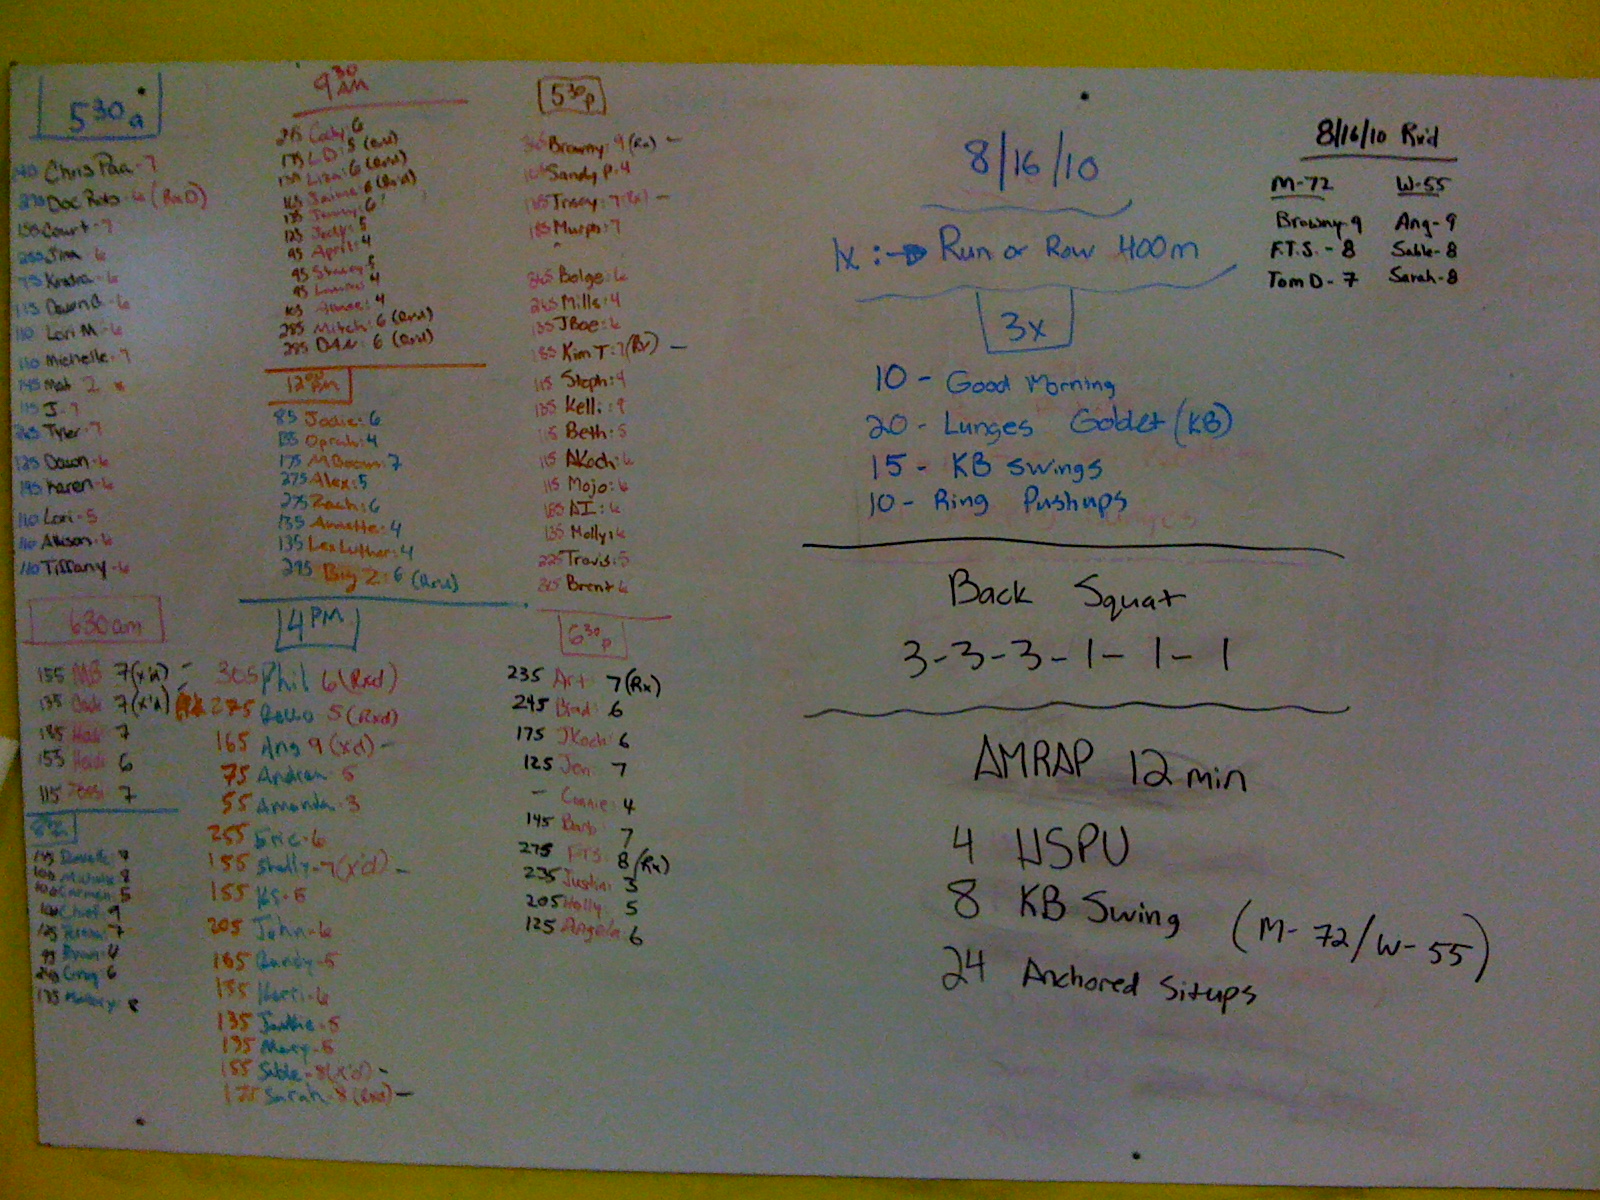 5 30 a
Chris Paa - 7
Doc Rob - 6 (RxD)
155 Court - 7
Jim - 6
75 Kendra - 6
115 Dawn B - 6
110 Lori M - 6
110 Michelle - 7
145 Mat 2
115 J - 7
265 Tyler - 7
125 Dawn - 6
195 Karen - 6
110 Lori - 5
110 Allison - 6
110 Tiffany - 6
630am
155 MB 7 (x'd) -
135 7 (x'd)
185 7
155 Heidi 6
115 7
7
8
Carmen 5
Chief 9
7
4
Greg 6
135 Mallory 8
9 30 AM
Cody: 6
175 LD: 5 (Rxd)
135 Liza: 6 (Rxd)
165 Jaime: 6 (Rx'd)
135 Jenny: 6
125 Jody: 5
95 April: 4
95 Stacey: 5
95 Laura: 4
165 Aimee: 4
285 Mitch: 6 (Rxd)
285 DAN: 6 (Rxd)
12 00 PM
85 Jodie: 6
135 Oprah: 4
175 MBoom: 7
275 Alex: 5
275 Zach: 6
135 Annette: 4
135 Lex Luther: 4
295 Big Z: 6 (Rxd)
4 PM
305 Phil 6 (Rxd)
275 Rollo 5 (Rxd)
165 Ang 9 (x'd) -
75 Andrea - 5
55 Amanda - 3
255 Eric - 6
155 Shelly - 7 (x'd) -
155 KS - 5
205 John - 6
165 Randy - 5
135 Kerri - 6
135 Jackie - 5
135 Mary - 5
155 Sable - 8 (x'd) -
175 Sarah - 8 (Rxd) -
5 30 p
Browny: 9 (Rx) -
Sandy P. 4
Tracy: 7 (Rx) -
185 Murph: 7
Bolge: 6
265 Mills: 4
135 JBae: 6
185 Kim T: 7 (Rx) -
115 Steph: 4
135 Kelli: 9
115 Beth: 5
115 AKoch: 6
115 Mojo: 6
185 AI: 6
135 Molly: 6
225 Travis: 5
Brent 6
6 30 p
235 Art 7 (Rx)
245 Brad: 6
175 JKoch: 6
125 Jen 7
- Connie: 4
145 Barb 7
275 FTS 8 (Rx)
235 Justin: 3
205 Holly 5
125 Angela 6
8/16/10
1x: → Run or Row 400m
3x
10 - Good Morning
20 - Lunges Goblet (KB)
15 - KB Swings
10 - Ring Pushups
Back Squat
3-3-3-1-1-1
AMRAP 12 min
4 HSPU
8 KB Swing (M- 72/W- 55)
24 Anchored Situps
8/16/10 Rx'd
M-72 W-55
Browny-9 Ang-9
F.T.S. - 8 Sable-8
Tom D- 7 Sarah-8